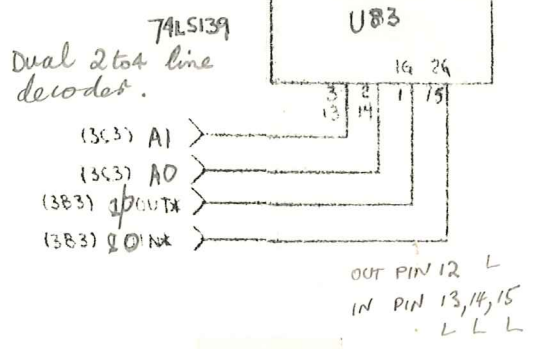 74LS139
U83
Dual 2 to 4 line
decoder.
1G 2G
3 2 1 15
13 14
(3C3) A1
(3C3) A0
(3B3) OUT*
(3B3) IN*
OUT PIN 12 L
IN PIN 13,14,15
L L L